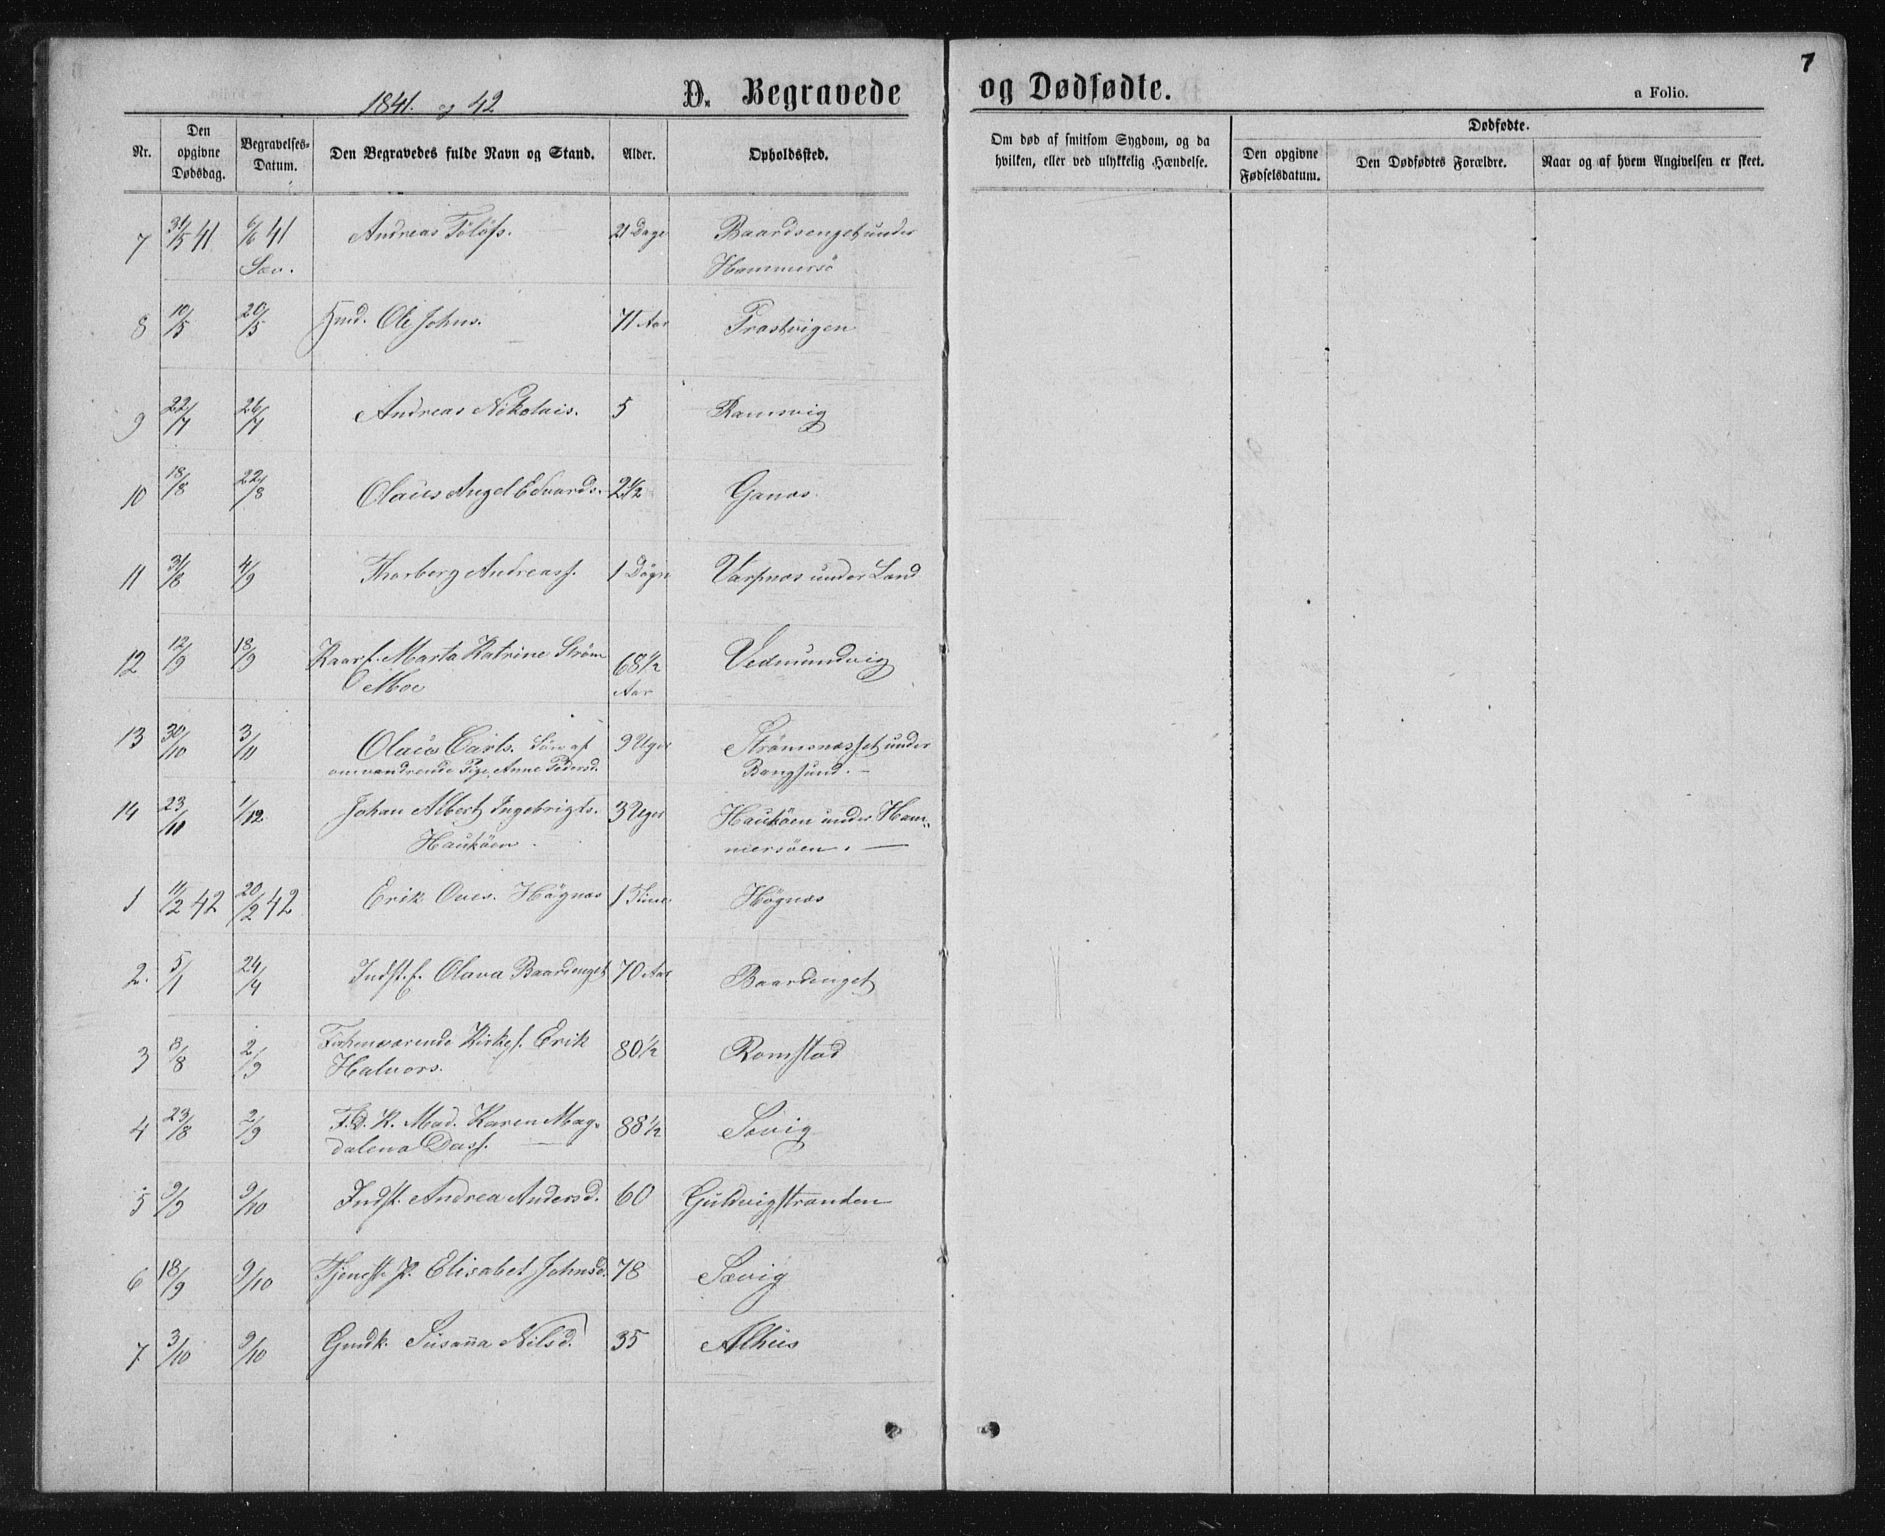 7
1841. og 42
D. Begravede og Dødfødte.
a Folio.
Nr.
Den opgivne Dødsdag.
Begravelses-Datum.
Den Begravedes fulde Navn og Stand.
Alder.
Opholdssted.
Om død af smitsom Sygdom, og da hvilken, eller ved ulykkelig Hændelse.
Dødfødte.
Den opgivne Fødselsdatum.
Den Dødfødtes Forældre.
Naar og af hvem Angivelsen er skeet.
7 31/5 41 6/6 41 Andreas Tolöfs. 21 Dage Baardsenget under
Sæv. Hammersö
8 10/5 20/5 Hmd. Ole Johns. 71 Aar Trastvigen
9 22/7 26/7 Andreas Nikolais. 5 Ramsvig
10 18/8 22/8 Olaus Angel Edvards. 2 1/2 Ganæs
11 31/8 4/9 Thorberg Andreass. 1 Dögn Varpnæs under Land
12 12/9 18/9 Kaarf. Marta Katrine Strøm 68 1/2 Vedmundvig
Moe Aar
13 30/10 3/11 Olaus Carls. Søn af 9 Uger Strömsnæsset under
omvandrende Pige Anne Pedersd. Bangsund. –
14 23/11 1/12 Johan Albert Ingebrigts. 3 Uger Hauköen under Ham-
Hauköen mersöen. –
1 11/2 42 20/2 42 Erik Oves. Högnæs 1 Time Högnæs
2. 5/1 24/4 Indst. f. Olava Baardenget 70 Aar Baardenget
3 8/8 2/9 Forhenværende Kirkes. Erik 80 1/2 Romstad
Halvors.
4 23/8 2/9 F. d. K. Mad. Karen Mag- 88 1/2 Sævig
dalena Dass. –
5 9/9 9/10 Indst. Andrea Andersd. 60 Guldvigstranden
6 18/9 9/10 Tjenste P. Elisabet Johnsd. 78 Sævig
7 3/10 9/10 Gmdk. Susanna Nilsd. 35 Alhus